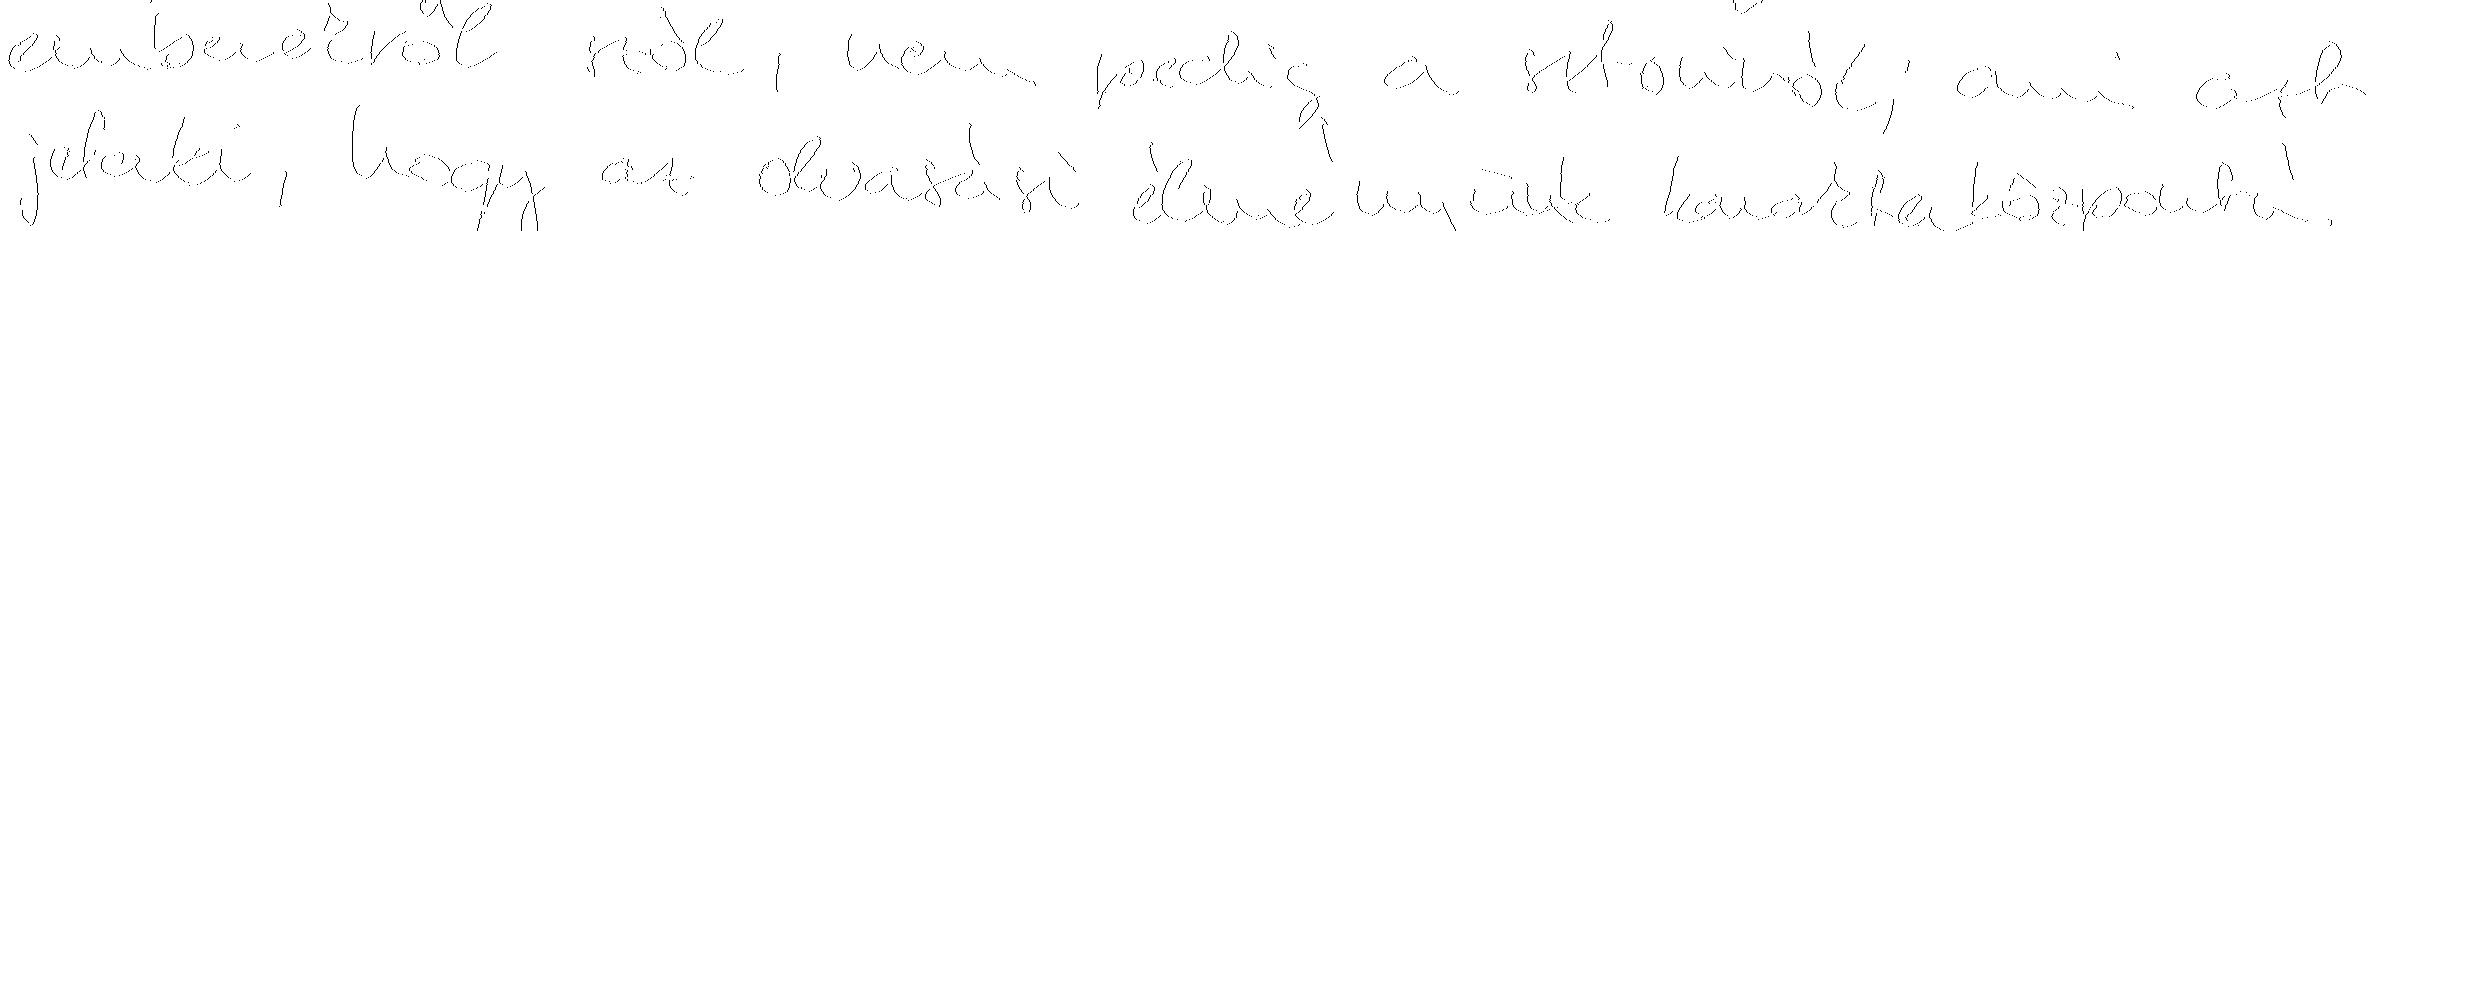 emberekről szól, nem pedig a sztoriról, ami azt
jelenti, hogy az olvasási élményünk karakterközpontú.